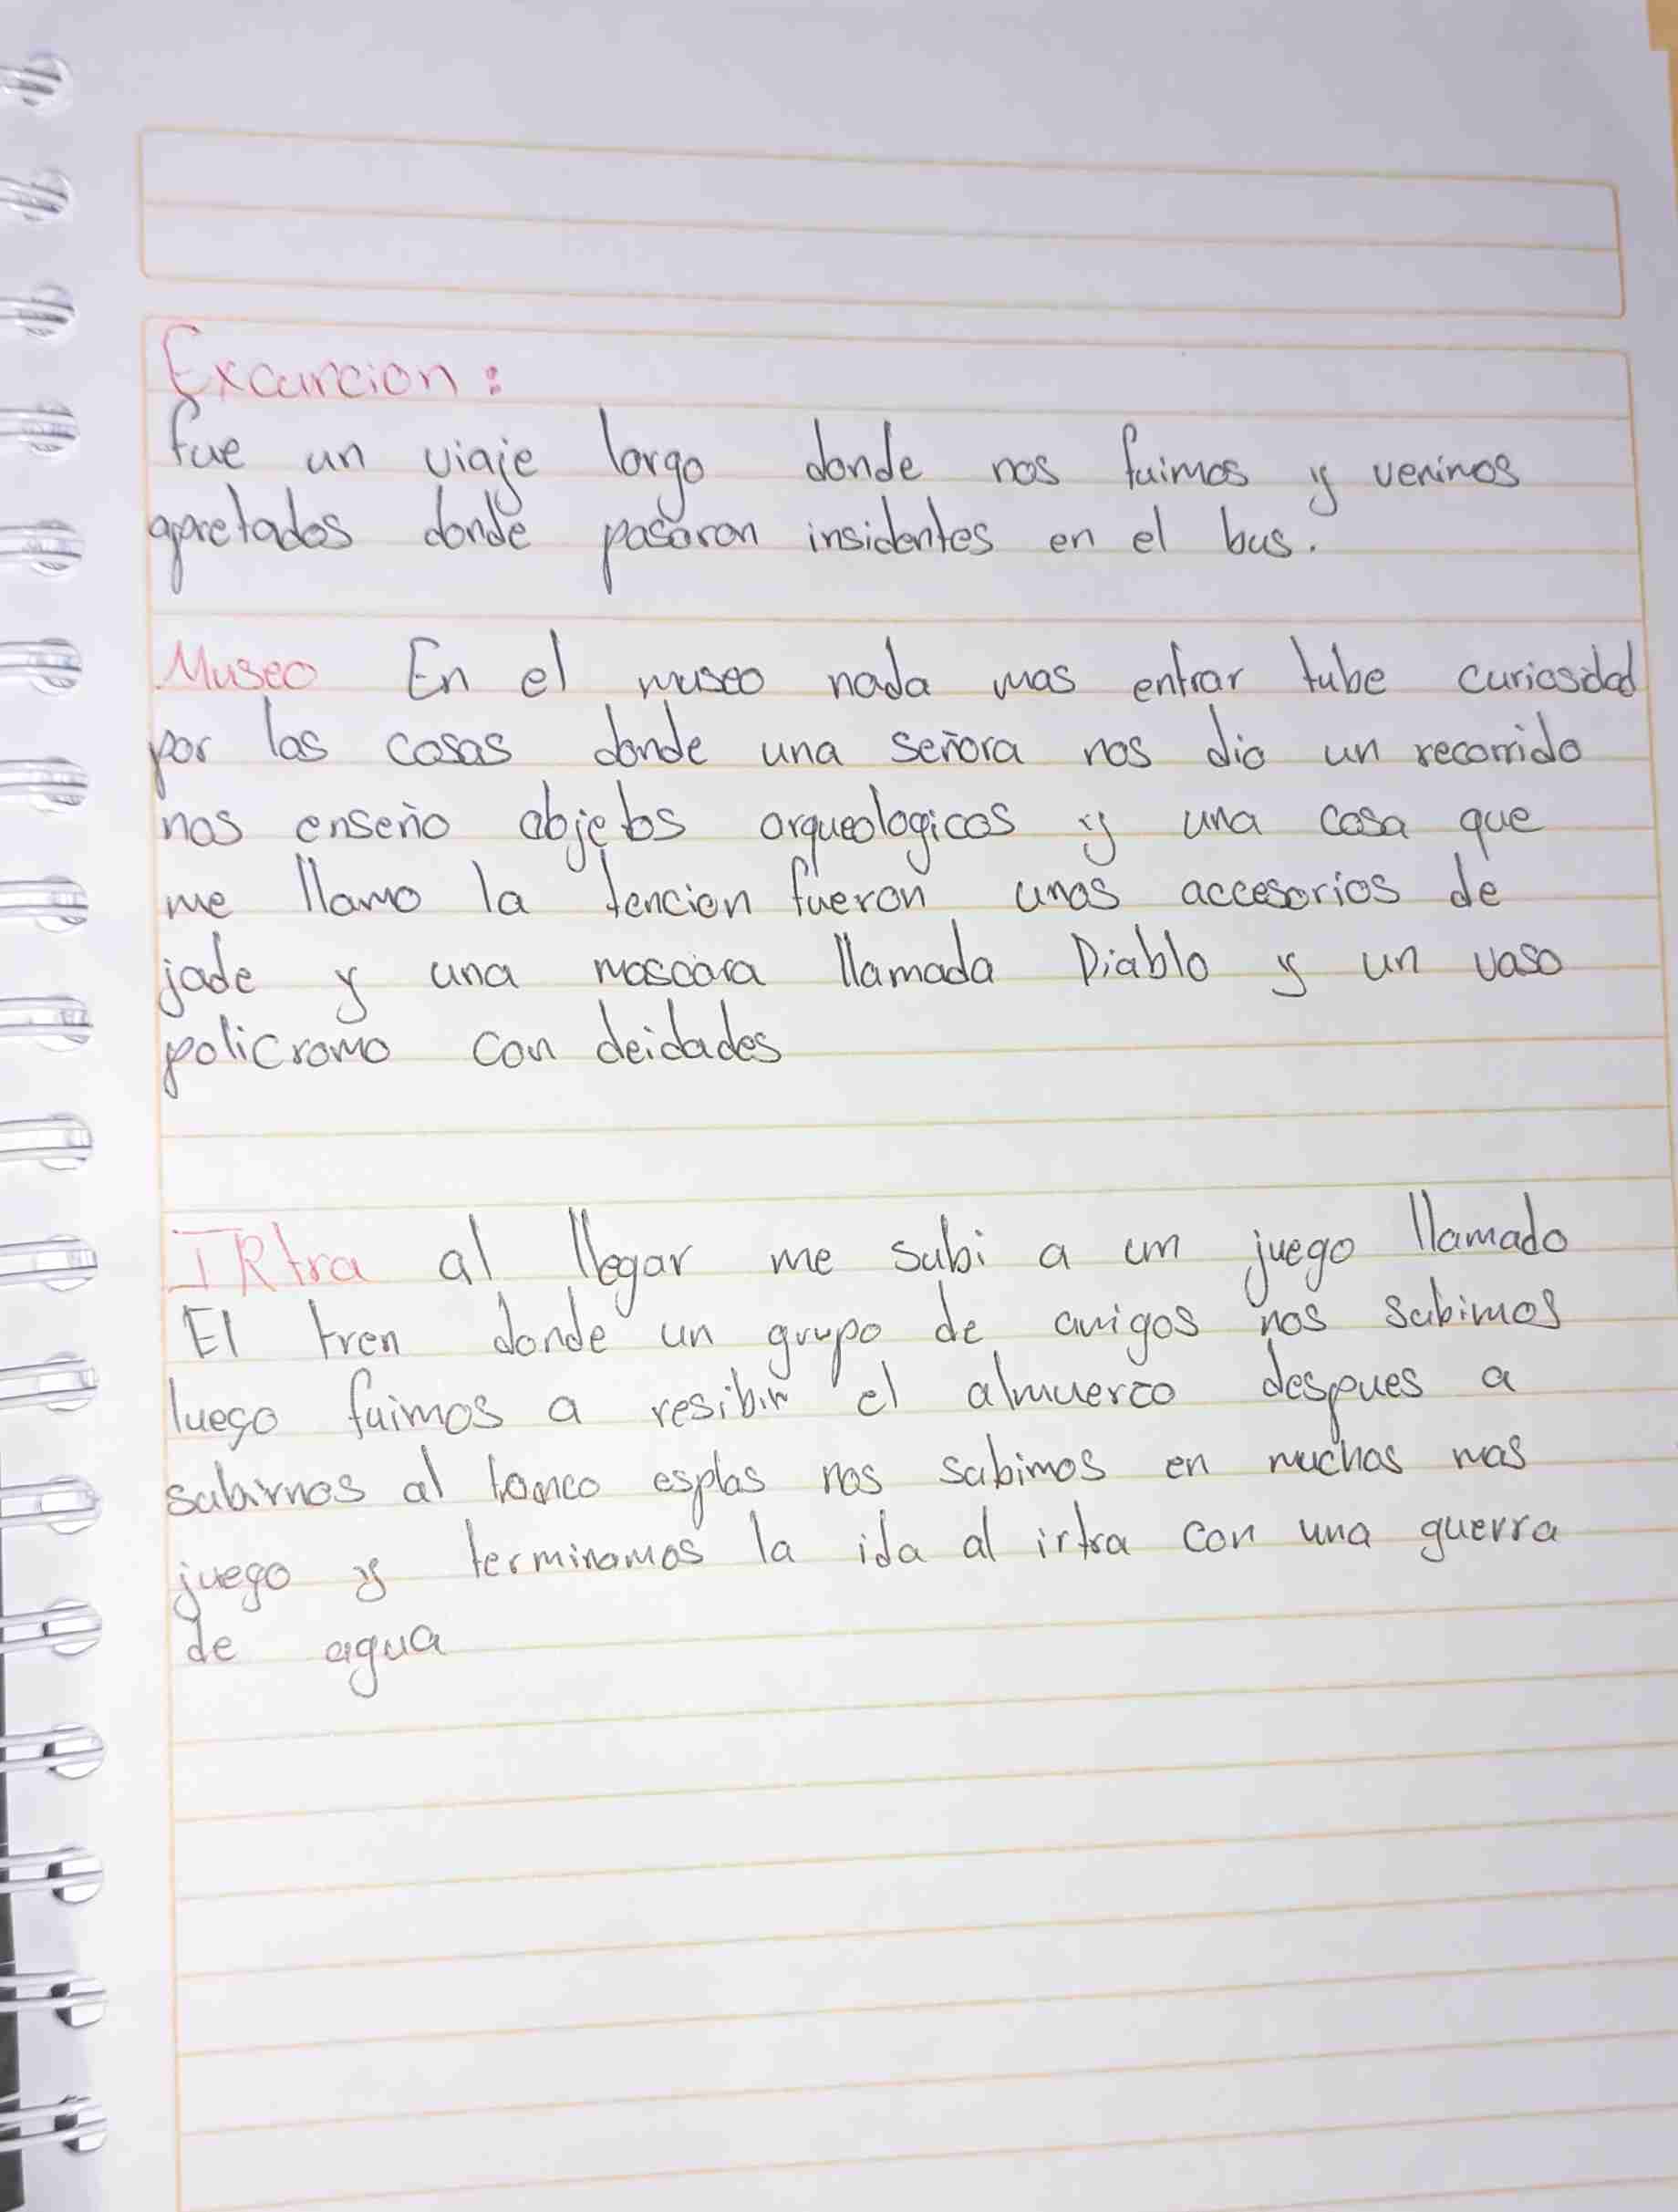 Excurcion:
fue un viaje largo donde nos fuimos y venimos
apretados donde pasaron insidentes en el bus.
Museo En el museo nada mas entrar tube curiosidad
por las cosas donde una señora nos dio un recorrido
nos enseño objetos arqueologicos y una cosa que
me llamo la tencion fueron unos accesorios de
jade y una mascara llamada Diablo y un vaso
policromo con deidades
IRtra al llegar me subi a un juego llamado
El tren donde un grupo de amigos nos subimos
luego fuimos a resibir el almuerzo despues a
subirnos al esplas nos subimos en muchos mas
juego y terminamos la ida al irtra con una guerra
de agua